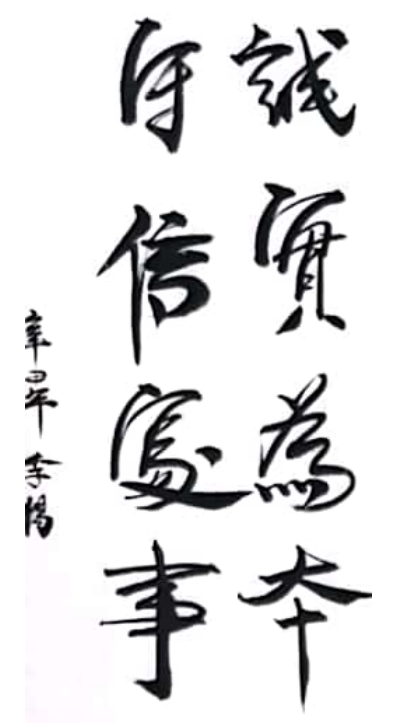 誠實為本
守信處事
辛丑年 李楊